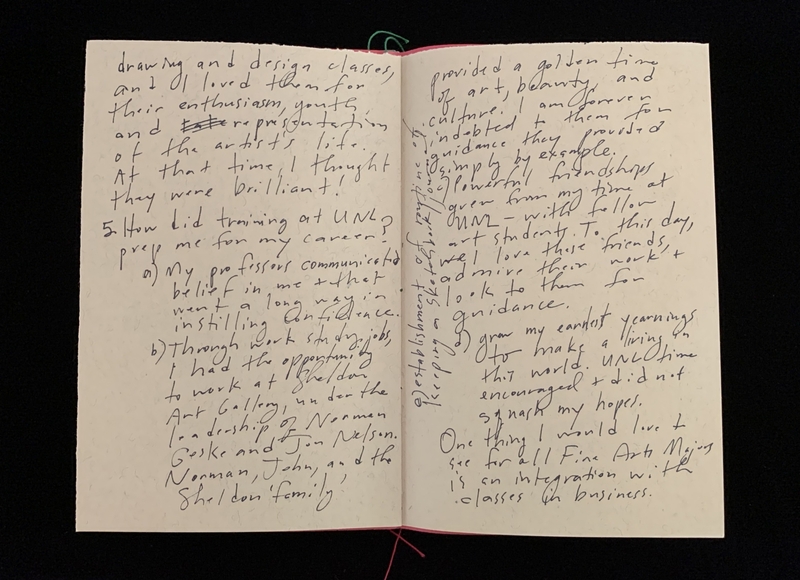 drawing and design classes,
and I loved them for
their enthusiasm, youth,
and representation
of the artist's life.
At that time, I thought
they were brilliant!
5. How did training at UNL
prep me for my career?
a) My professors communicated
belief in me + that
went a long way in
instilling confidence.
b) Through work study jobs,
I had the opportunity
to work at Sheldon
Art Gallery, under the
leadership of Norman
Geske and Jon Nelson.
Norman, John, and the
Sheldon 'family'
provided a golden time
of art, beauty, and
culture. I am forever
indebted to them for
guidance they provided
simply by example.
c) Powerful friendships
grew from my time at
UNL - with fellow
art students. To this day,
we love those friends,
admire their work +
look to them for
guidance.
d) grew my earnest yearnings
to make a living in
this world. UNL time
encouraged + did not
squash my hopes.
One thing I would love to
see for all Fine Arts Majors
is an integration with
classes in business.
e) establishment of routine of